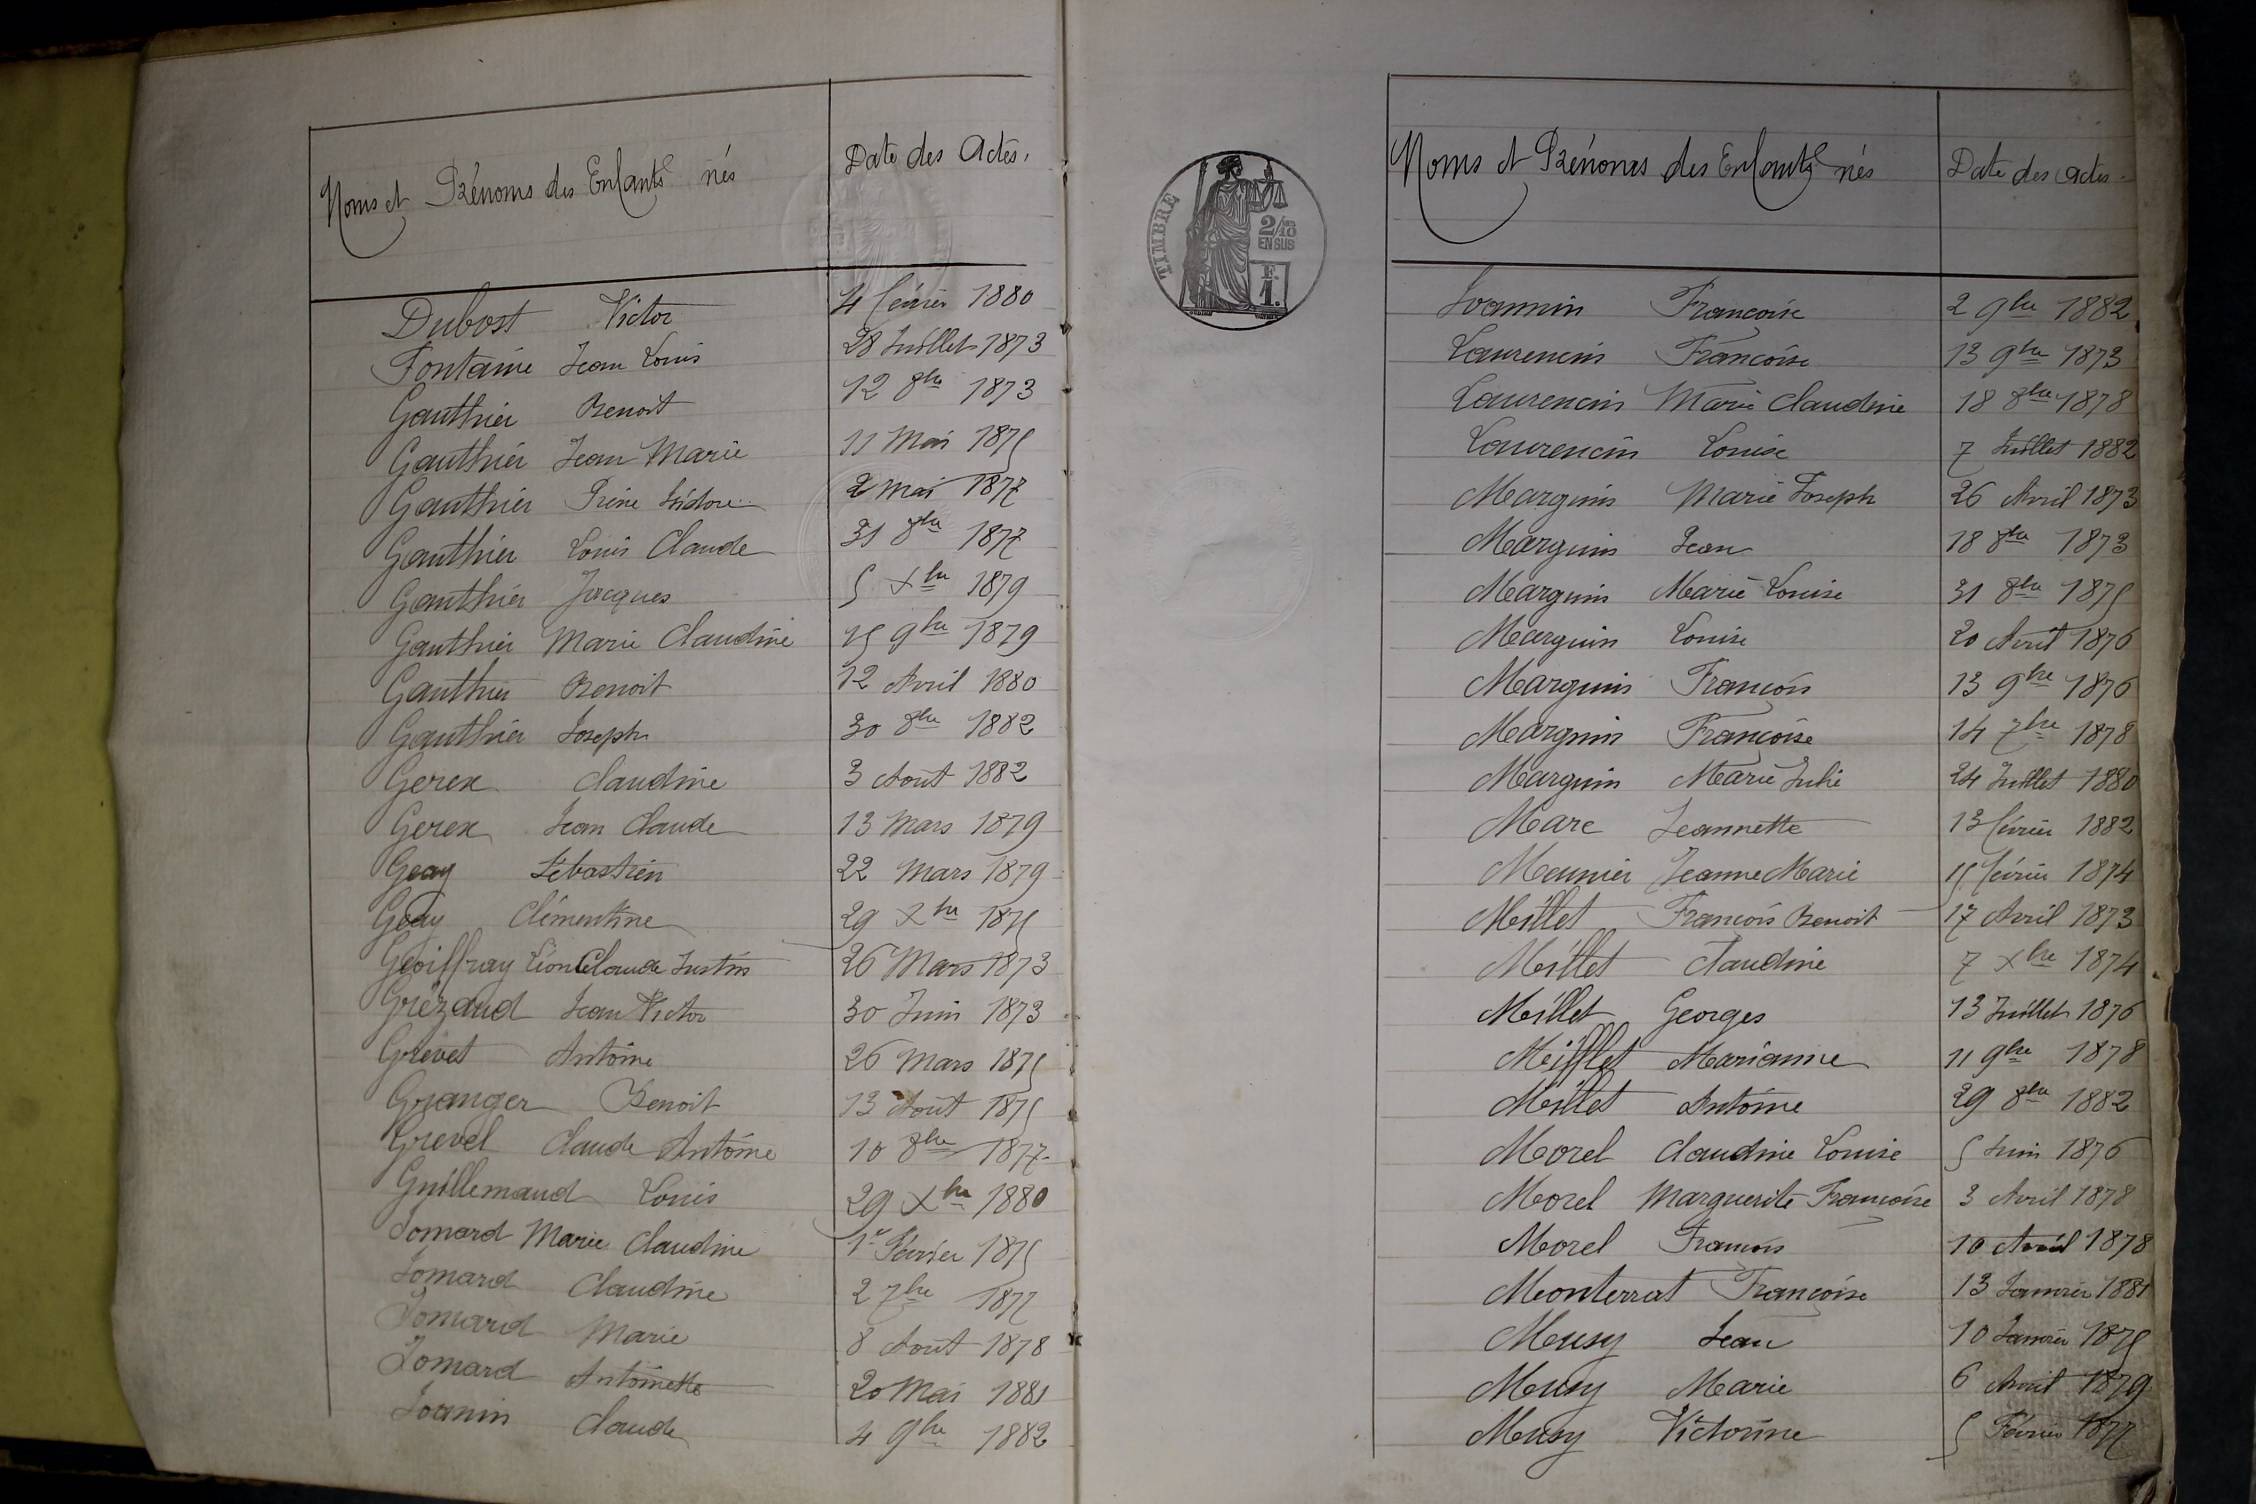 Noms et Prénoms des Enfants nés Date des Actes.
Dubost Victor 4 février 1880
Fontaine Jean Louis 28 Juillet 1873
Gauthier Benoit 12 8bre 1873
Gauthier Jean Marie 11 Mai 1875
Gauthier Isidore 2 Mai 1877
Gauthier Louis Claude 31 8bre 1877
Gauthier Jacques 5 Xbre 1879
Gauthier Marie Claudine 15 9bre 1879
Gauthier Benoit 12 Avril 1880
Gauthier Joseph 30 8bre 1882
Gerex Claudine 3 Août 1882
Gerex Jean Claude 13 Mars 1879
Geay Sébastien 22 Mars 1879
Geay Clémentine 29 Xbre 1875
Geoiffray Léon Claude Justin 26 Mars 1873
Grézaud Jean Victor 30 Juin 1873
Grevet Antoine 26 Mars 1875
Granger Benoit 13 Août 1875
Grevel Claude Antoine 10 8bre 1877
Guillemaud Louis 29 Xbre 1880
Jomard Marie Claudine 1r Février 1875
Jomard Claudine 2 7bre 1877
Jomard Marie 8 Août 1878
Jomard Antoinette 20 Mai 1881
Joanin Claude 4 9bre 1882
TIMBRE
2/10
EN SUS
F.
1.
Noms et Prénoms des Enfants nés Date des Actes.
Joannin Françoise 2 9bre 1882
Laurencin Françoise 13 9bre 1873
Laurencin Marie Claudine 18 8bre 1878
Laurencin Louise 7 Juillet 1882
Marguin Marie Joseph 26 Avril 1873
Marguin Jean 18 8bre 1873
Marguin Marie Louise 31 8bre 1875
Marguin Louise 20 Avril 1876
Marguin François 13 9bre 1876
Marguin Françoise 14 7bre 1878
Marguin Marie Julie 24 Juillet 1880
Marc Jeannette 13 février 1882
Meunier Jeanne Marie 15 février 1874
Millet François Benoit 17 Avril 1873
Millet Claudine 7 Xbre 1874
Millet Georges 13 Juillet 1876
Mifflet Marianne 11 9bre 1878
Millet Antoine 29 8bre 1882
Morel Claudine Louise 5 Juin 1876
Morel Marguerite Françoise 3 Avril 1878
Morel François 10 Avril 1878
Monterrat Françoise 13 Janvier 1881
Meusy Jean 10 Janvier 1875
Meusy Marie 6 Avril 1879
Meusy Victorine 5 Février 1877